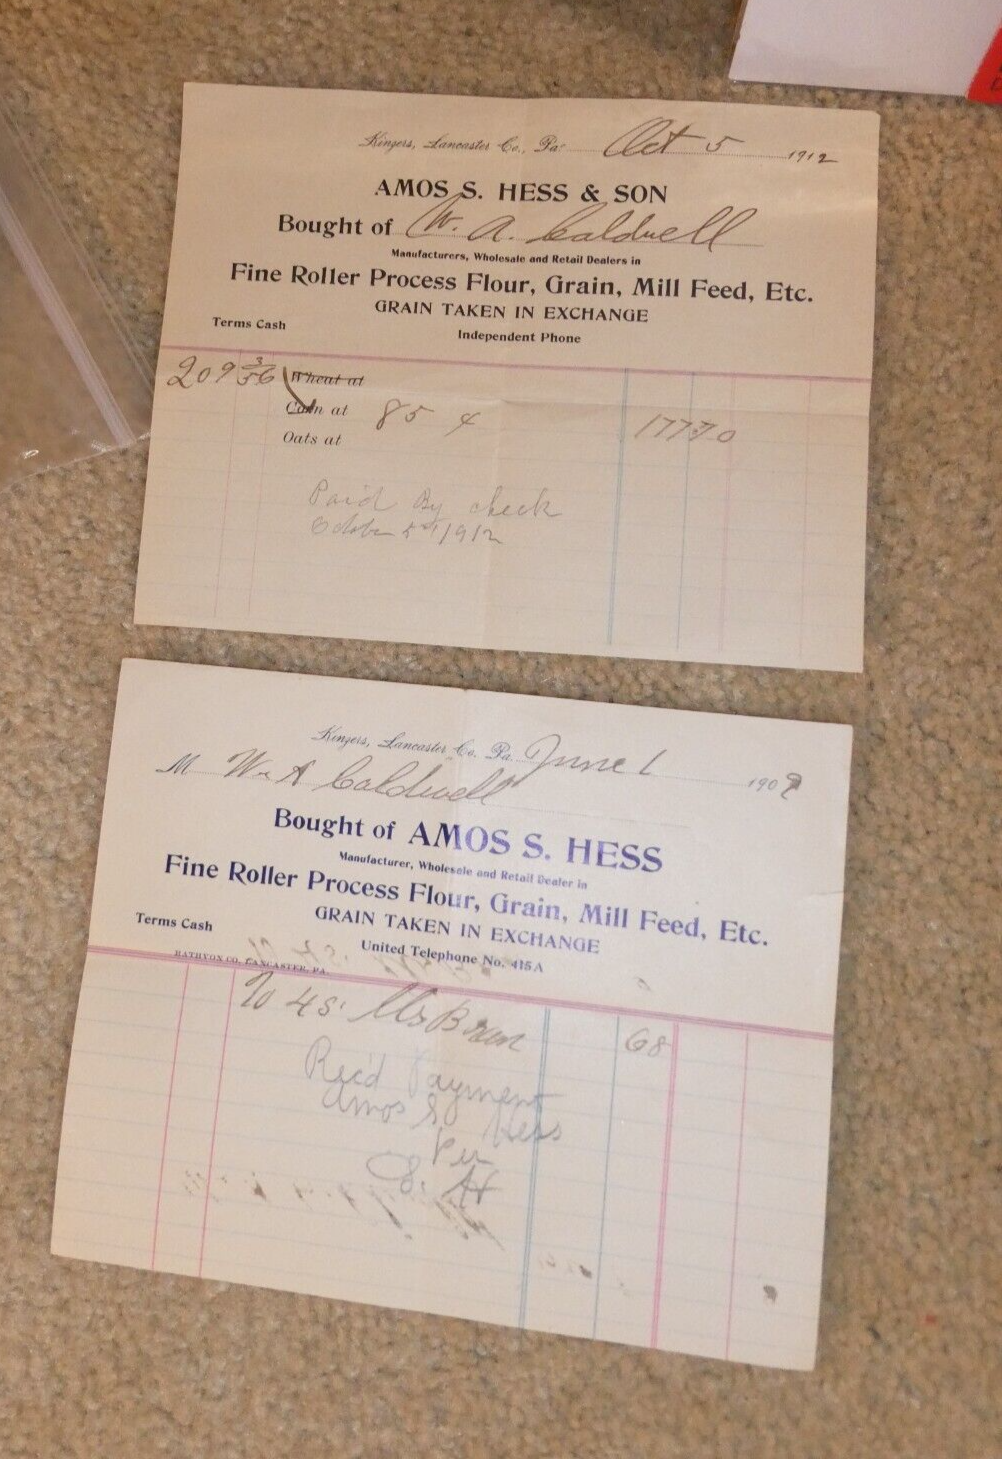 Kinzers, Lancaster Co., Pa. Oct 5 1912
AMOS S. HESS & SON
Bought of W. A. Caldwell
Manufacturers, Wholesale and Retail Dealers in
Fine Roller Process Flour, Grain, Mill Feed, Etc.
GRAIN TAKEN IN EXCHANGE
Terms Cash
Independent Phone
209 3/56 Wheat at
Corn at 85 ¢ 177 70
Oats at
Paid By check
October 5th 1912
Kinzers, Lancaster Co. Pa. June 1 1909
M Wm A Caldwell
Bought of AMOS S. HESS
Manufacturer, Wholesale and Retail Dealer in
Fine Roller Process Flour, Grain, Mill Feed, Etc.
GRAIN TAKEN IN EXCHANGE
Terms Cash
United Telephone No. 415A
RATHVON CO. LANCASTER, PA.
To 48 lbs Bran 68
Rec'd Payment
Amos S Hess
Per
E. H